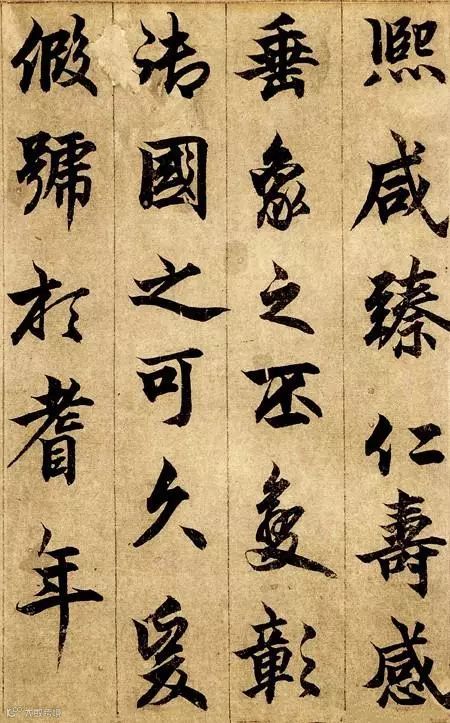 熙咸臻仁壽感
垂象之丕變彰
國之可久爰
假號於耆年